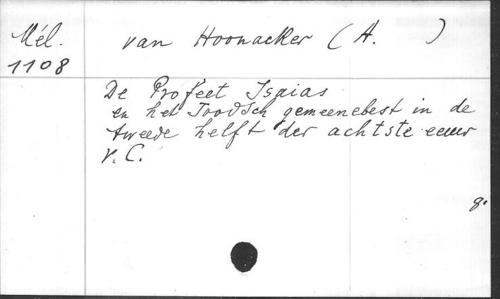 Mél.
1108
van Hoonacker (A. )
De Profeet Isaias
en het Joodsch gemeenebest in de
tweede helft der achtste eeuw
v. C.
8°